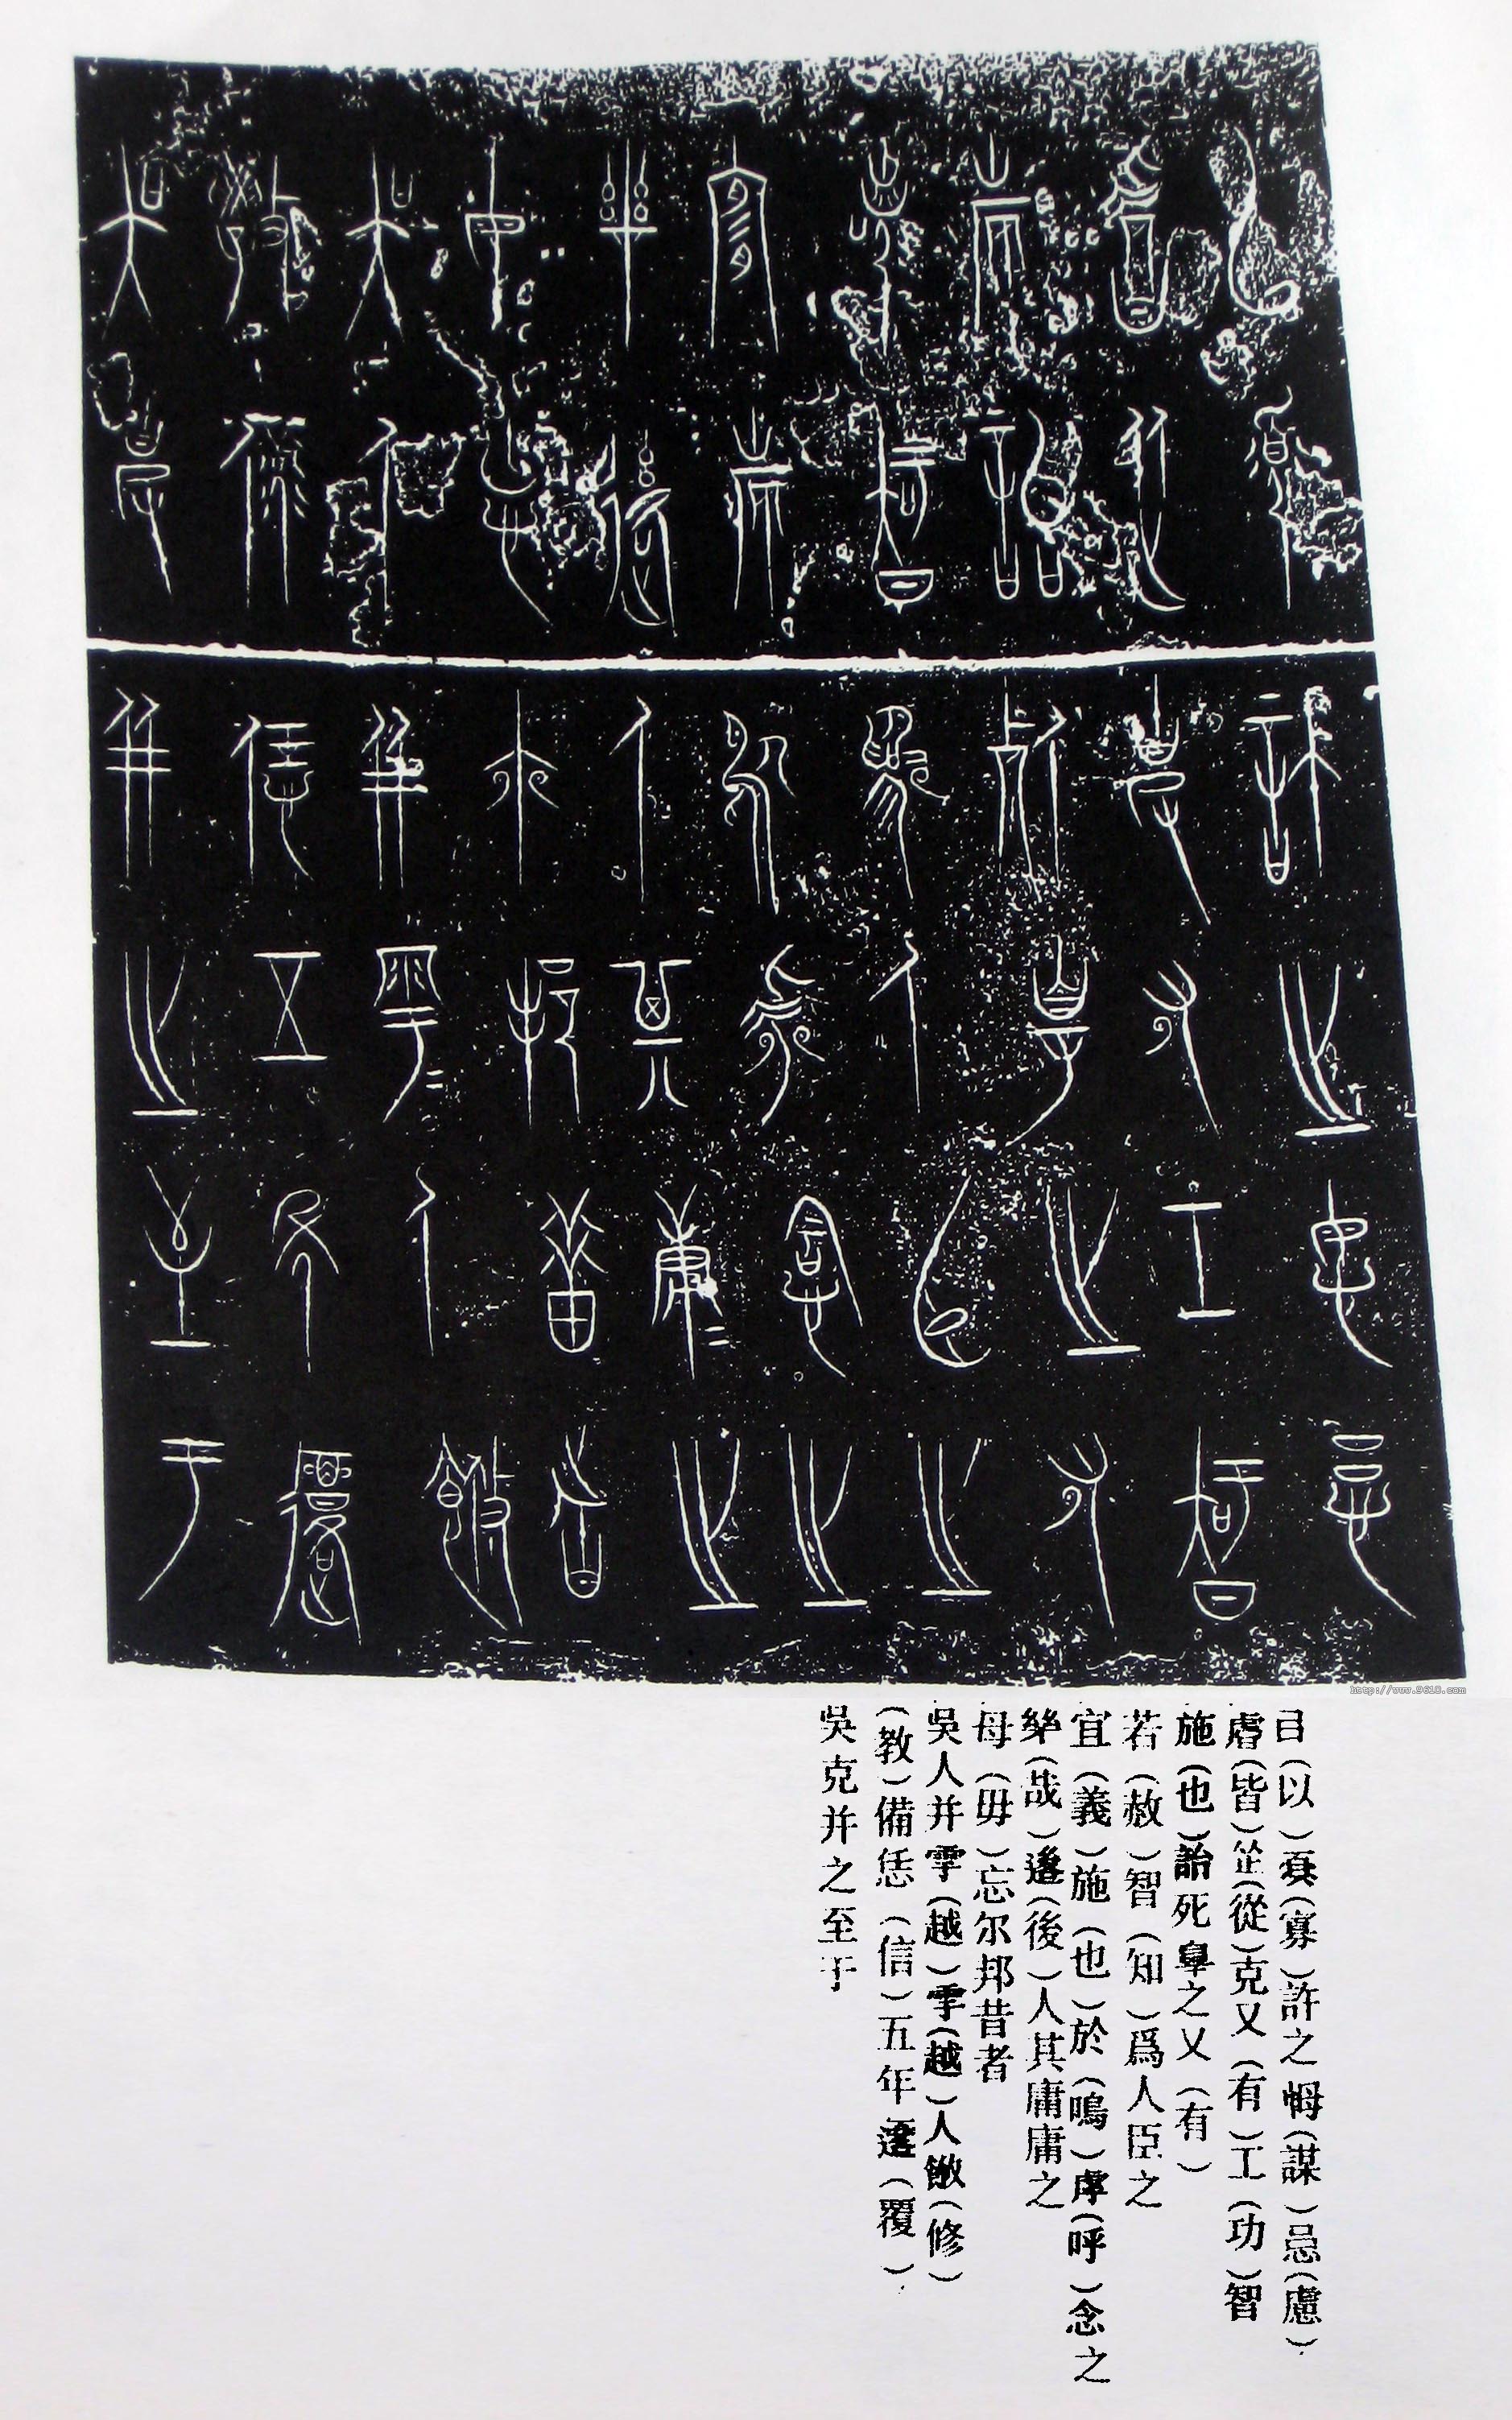 㠯(以)寡(寡)許之㥄(謀)忌(慮)
虘(皆)𦭝(從)克又(有)工(功)智
施(也)詒死辠之又(有)
若(赦)智(知)爲人臣之
宜(義)施(也)於(鳴)虖(呼)念之
𢦏(哉)逡(後)人其庸庸之
母(毋)忘尔邦昔者
吳人并雩(越)雩(越)人䭒(修)
(教)備恁(信)五年遷(覆)
吳克并之至于
http://www.9610.com